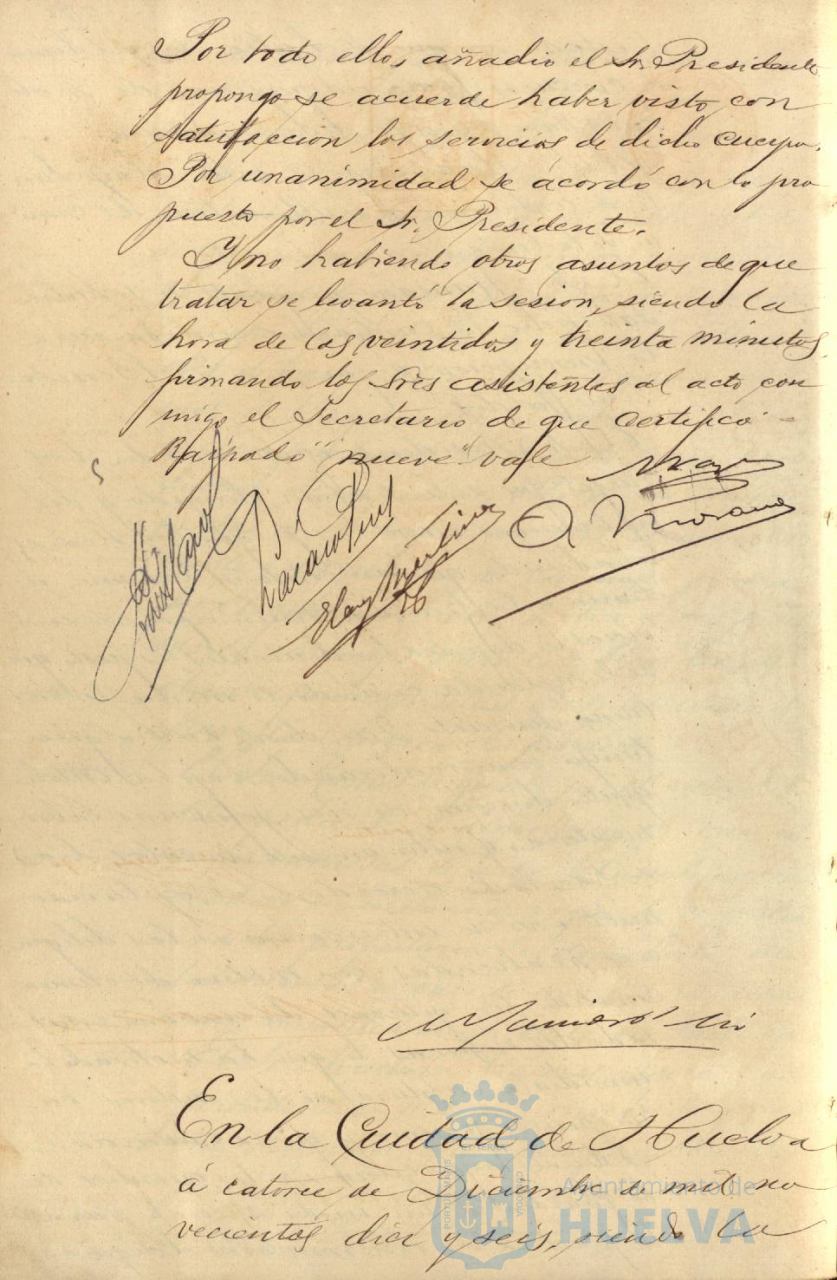 Por todo ello, añadió el Sr. Presidente
propongo se acuerde haber visto con
satisfaccion los servicios de dicho cuerpo.
Por unanimidad se acordó con lo pro
puesto por el Sr. Presidente.
Y no habiendo otros asuntos de que
tratar se levantó la sesion, siendo la
hora de las veintidos y treinta minutos,
firmando los Sres asistentes al acto con
migo el Secretario de que certifico -
Raspado "nueve" vale
Eloy Martin
En la Ciudad de Huelva
á catorce de Diciembre de mil no
vecientos diez y seis, siendo la
Ayuntamiento de
HUELVA